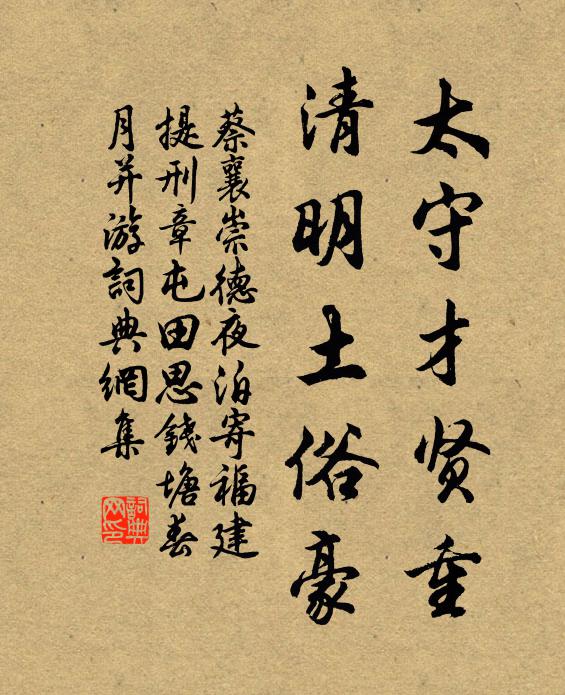 太守才贤重
清明土俗豪
蔡襄崇德夜泊寄福建
提刑章屯田思錢塘春
月并游詞典網集
詞典
网印